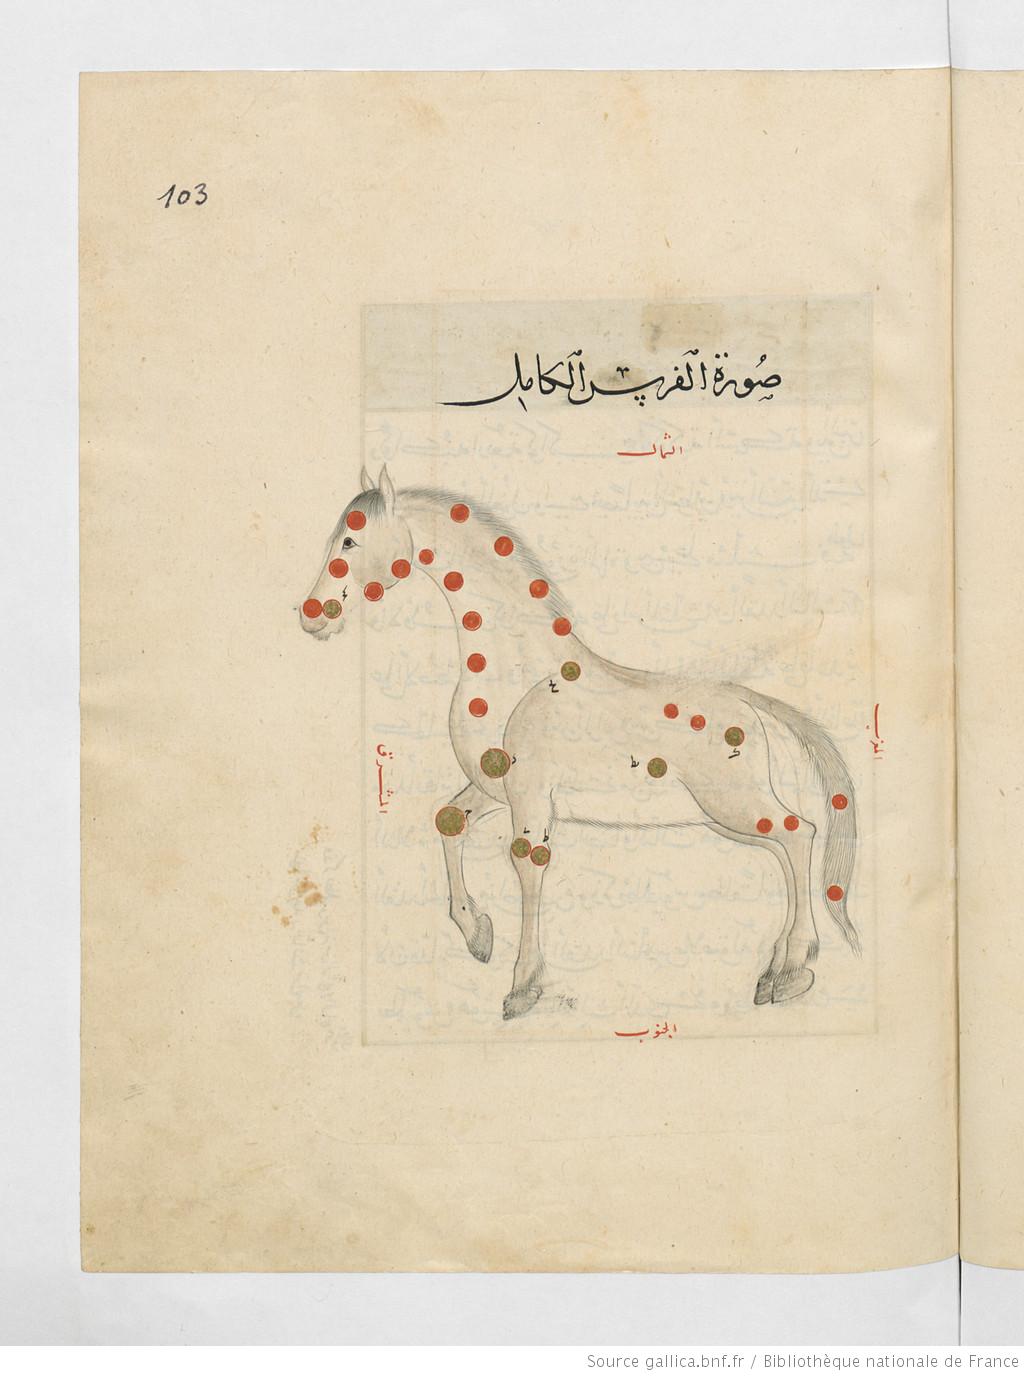 103
صُورة الفرس الكامل
الشمال
المغرب
المشرق
ع
د
ط
ك
ح
الجنوب
Source gallica.bnf.fr / Bibliothèque nationale de France